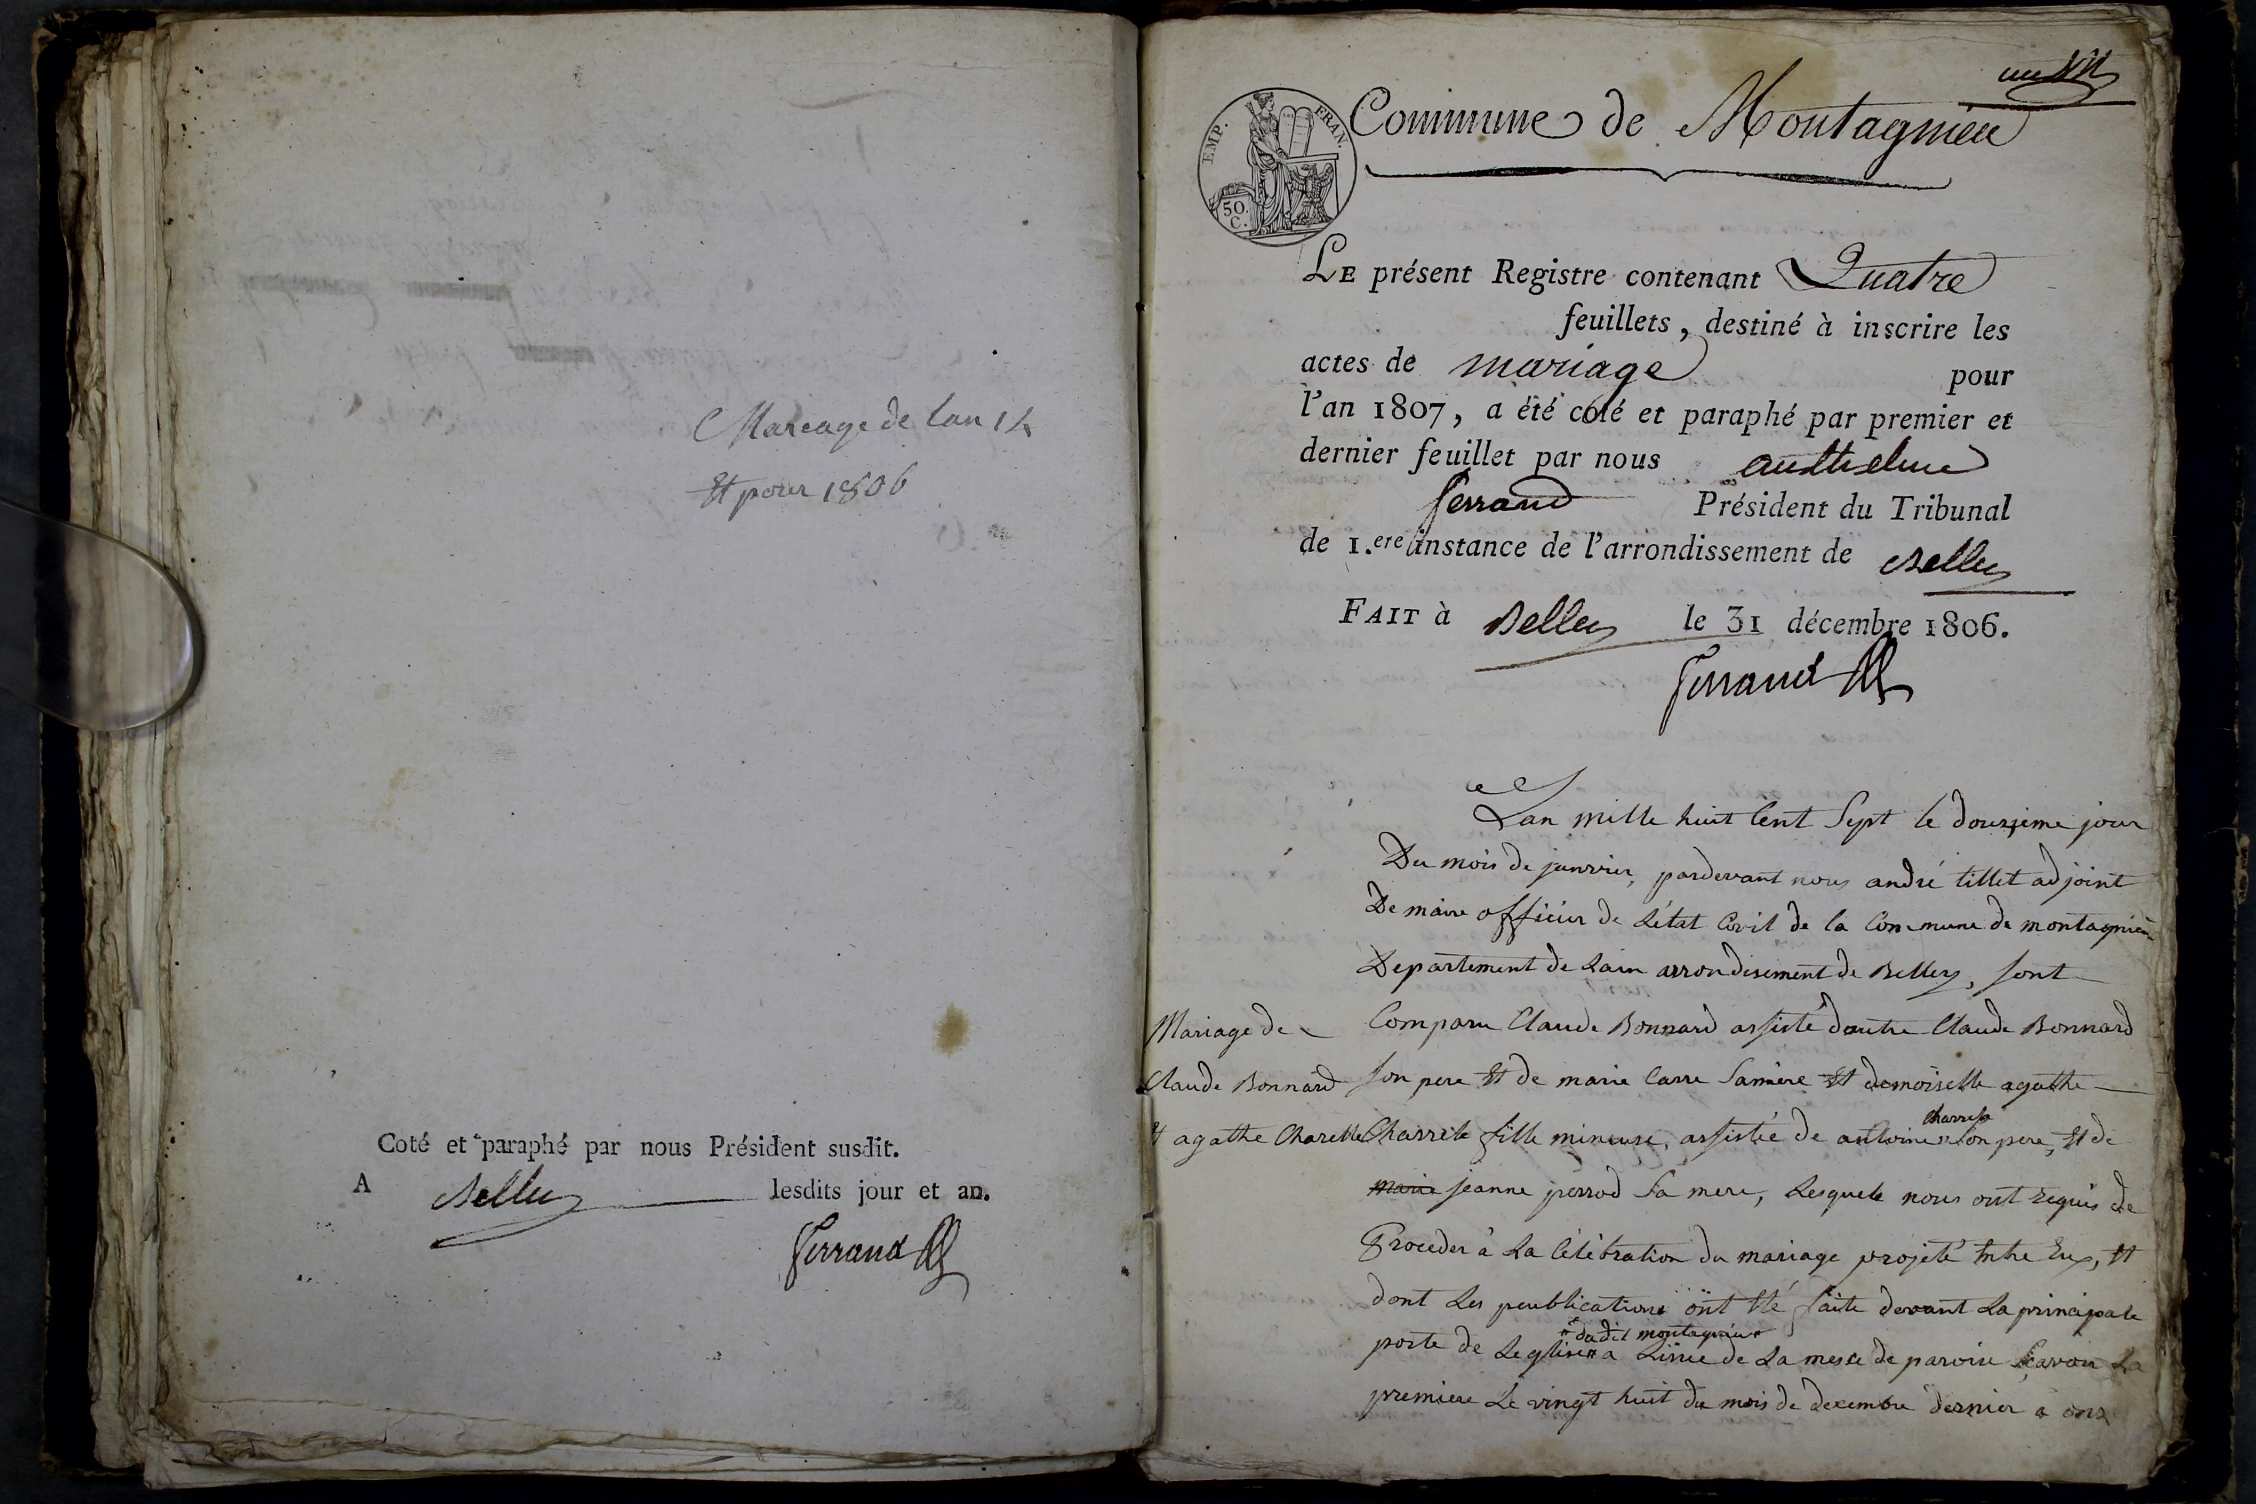 Mareage de lan 14
Et pour 1806
Coté et paraphé par nous Président susdit.
A Belley lesdits jour et an.
Ferrand
un
EMP. FRAN.
50.
C.
Commune de Montagnieu
LE présent Registre contenant Quatre
feuillets, destiné à inscrire les
actes de mariage pour
l'an 1807, a été coté et paraphé par premier et
dernier feuillet par nous anthelme
ferrand Président du Tribunal
de 1.ere instance de l'arrondissement de Belley
FAIT à Belley le 31 décembre 1806.
ferrand
Lan mille huit Cent Sept le douzieme jour
Du mois de janvier, pardevant nous andré tillet adjoint
De maire officier de Létat Civil de la Commune de montagnieu
Departement de Lain arrondisement de Belley, sont
Mariage de
Claude Bonnard
et agathe Charelle
Comparu Claude Bonnard assisté dautre Claude Bonnard
son pere Et de marie Carre Samere Et demoiselle agathe
Charrele fille mineure, assistée de antoine Charrele son pere, Et de
marie jeanne perrod Sa mere, Lesquele nous ont requis de
Proceder à La Célébration du mariage projeté Entre Eux, Et
dont Les peublications ont Eté faite devant La principale
porte de Leglise dudit montagnieu a Lissue de La messe de paroise Sçavoir La
premiere Le vingt huit du mois de decembre dernier a onz